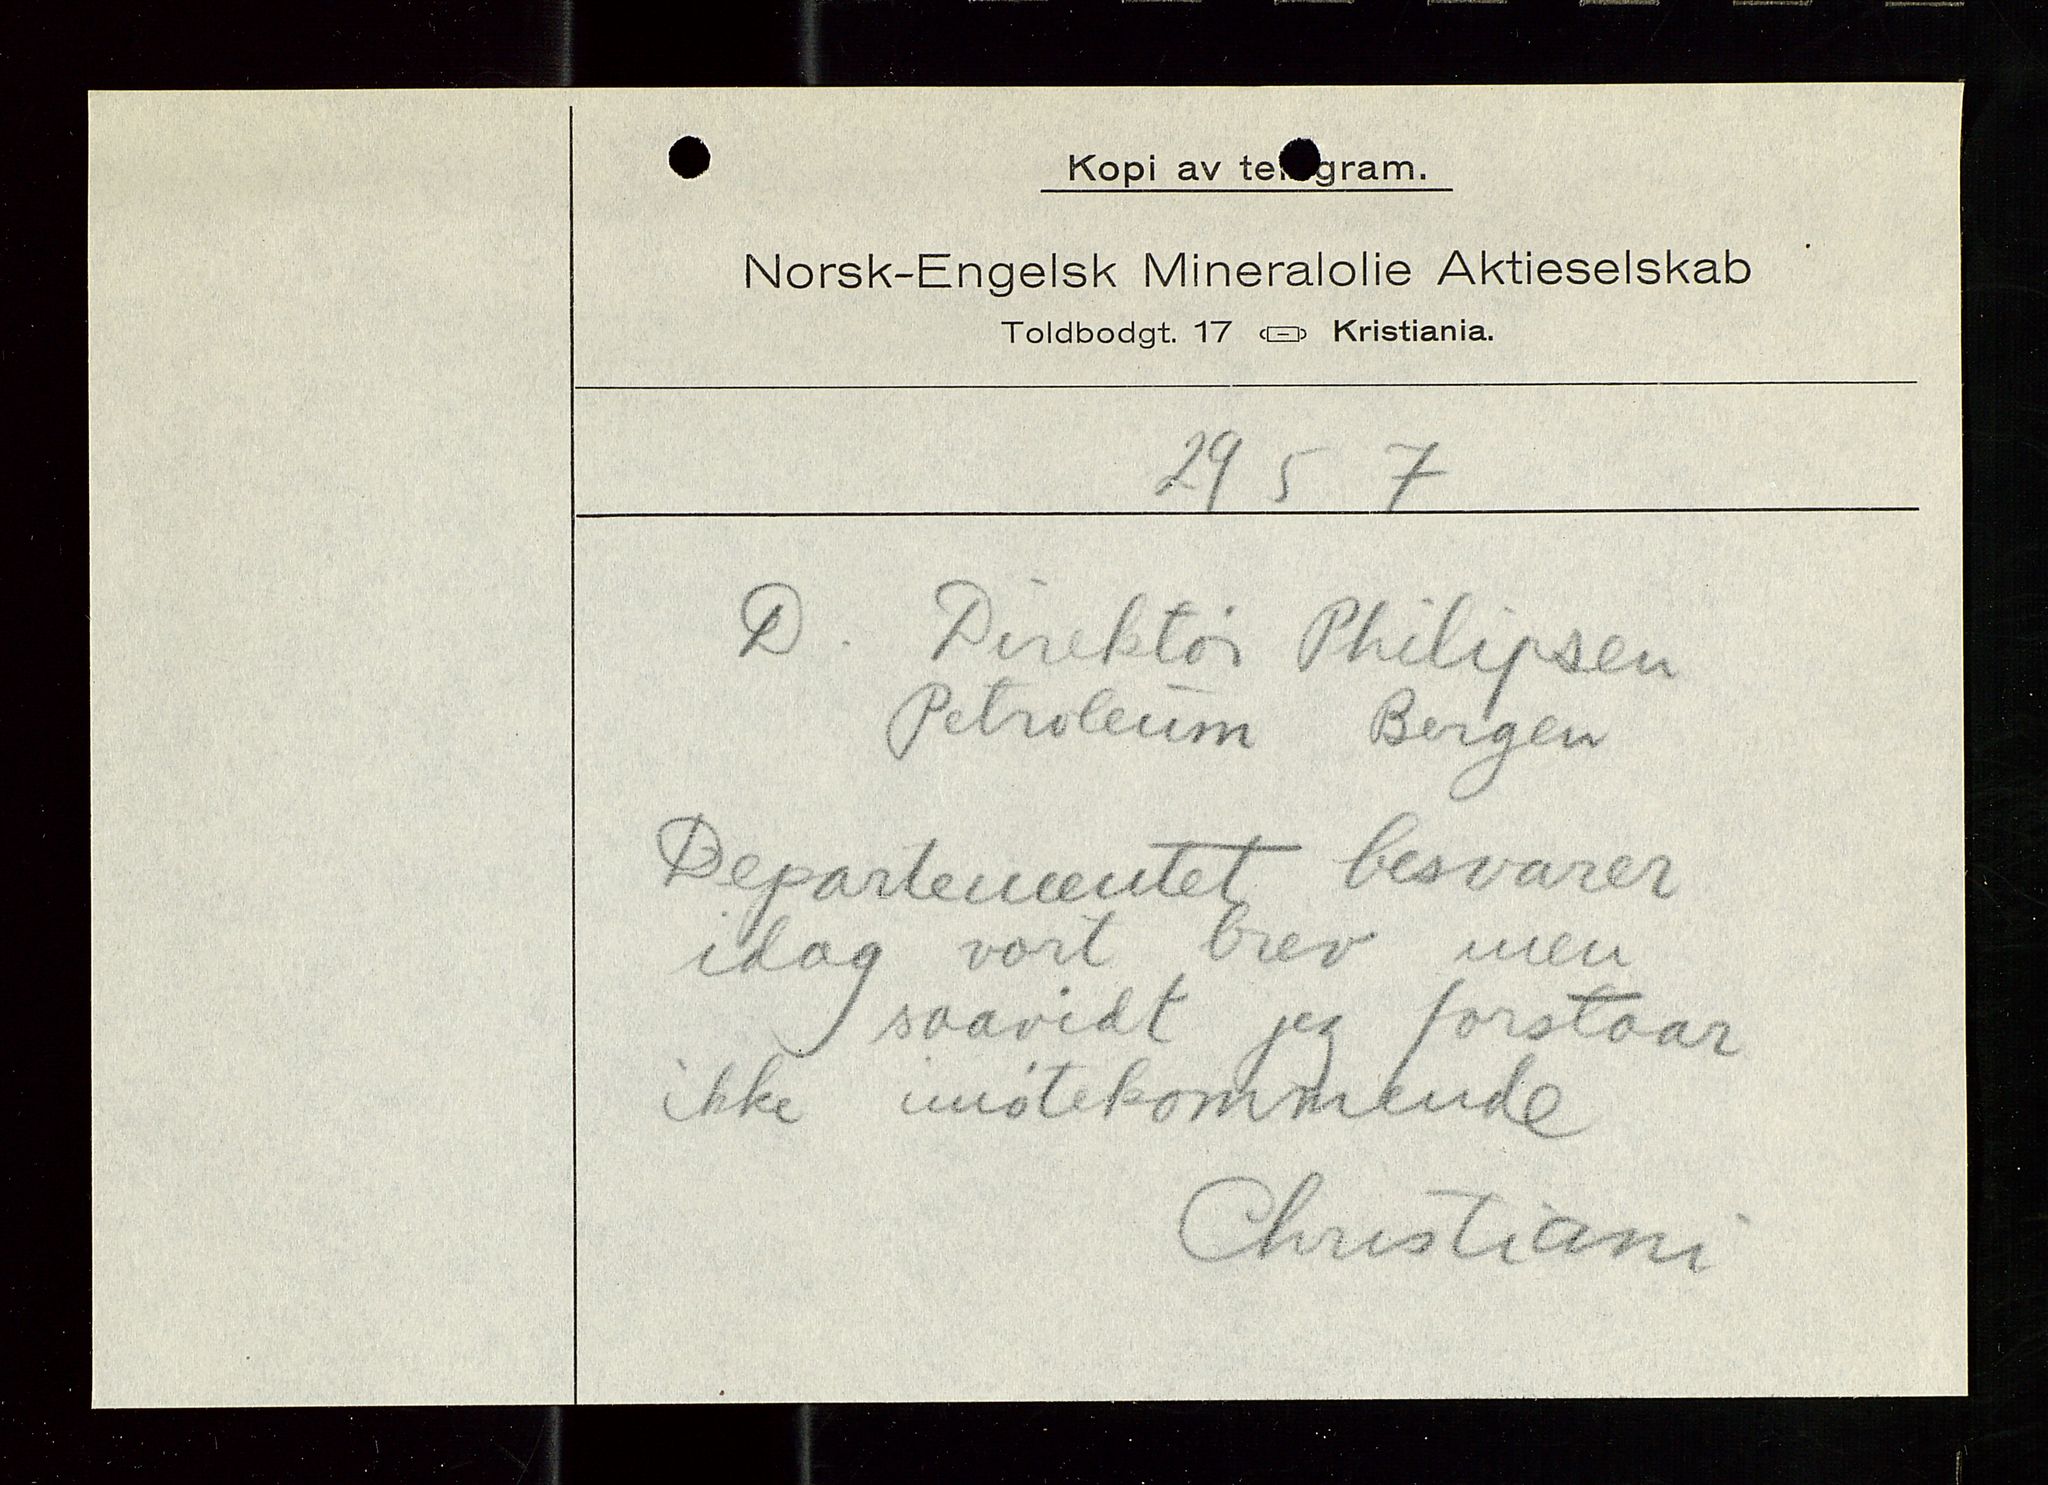 Kopi av telegram.
Norsk-Engelsk Mineralolie Aktieselskab
Toldbodgt. 17 Kristiania.
29 5 7
D. Direktör Philipsen
Petroleum Bergen
Departementet besvarer
idag vort brev men
saavidt jeg forstaar
ikke imötekommende
Christiani